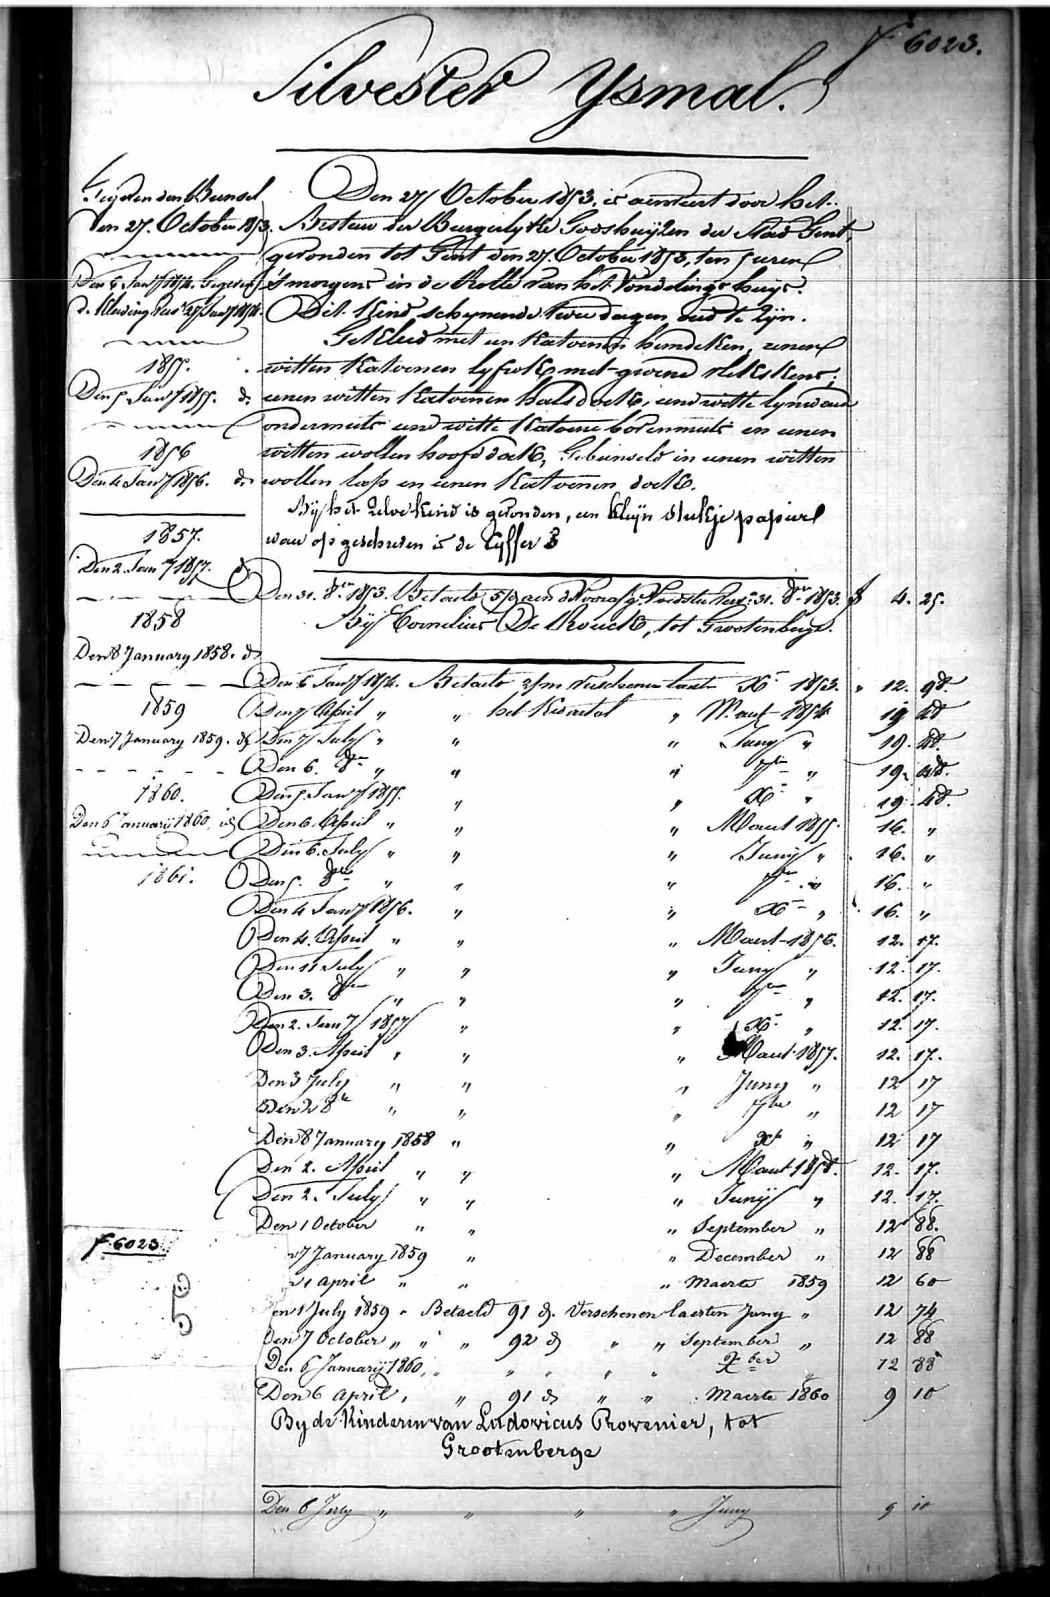 f 6023.
Silvester Ysmal.
Den 27 October 1853, is aenveert door het
Bestuur der Burgerlyke Godshuyzen der Stad Gent,
gevonden tot Gent den 27. October 1853, ten 5 uren
's morgens in de Rolle van het Vondelingshuys.
Dit Kind schynende twee dagen oud te zyn.
Gekleed met een Katoenen hemdeken, eenen
witten Katoenen lyfrok met groene
eenen witten Katoenen halsdoek, eene witte lynwaed
ondermuts eene witte Katoene bovenmuts en eenen
witten wollen hoofddoek, Gebunseld in eenen witten
wollen lap en eenen Katoenen doek.
Bij het zelve Kind is gevonden, een kleijn stukje papier
waer op geschreven is de Cyffer 3
den Bunsel
den 27. October 1853.
Den 6 Jany 1854. Gegeven
de Kleeding 27 Jany 1854.
1855.
Den 5 Jany 1855. do
1856
Den 4 Jany 1856. do
1857.
Den 2. Jany 1857. do
1858
Den 8 January 1858. do
1859
Den 7 January 1859. do
1860.
Den 6 January 1860, id
1861.
Den 31. 8ber 1853. Betaeld 5/9 aen de Voorafg. Voedster 31. 8ber 1853. f 4. 25.
Bij Cornelius De Kouck, tot Grootenberge.
Den 6 Jany 1854. Betaeld 2/m verschenen laest Xber 1853. " 12. 98.
Den 7 April " " het Kwartael " Maert 1854 19 48
Den 7 July " " " Juny " 19. 48.
Den 6. 8ber " " " 7ber " 19. 48.
Den 5. Jany 1855. " " Xber " 19 48.
Den 6. April " " " Maert 1855. 16. "
Den 6. July " " " Juny " 16. "
Den 5. 8ber " " " 7ber " 16. "
Den 4 Jany 1856. " " Xber " 16. "
Den 4. April " " " Maert 1856. 12. 17.
Den 11 July " " " Juny " 12. 17.
Den 3. 8ber " " " 7ber " 12. 17.
Den 2. Jany 1857 " " Xber " 12. 17.
Den 3. April " " " Maert 1857. 12. 17.
Den 3 July " " " Juny " 12 17
Den 2 8bre " " " 7bre " 12 17
Den 8 January 1858 " " Xbr " 12 17
Den 2. April " " " Maert 1858. 12. 17.
Den 2. July " " " Junij " 12. 17.
Den 1 October " " " September " 12 88.
7 January 1859 " " December " 12 88
1 April " " " Maerte 1859 12 60
en 1 July 1859 " Betaeld 91 d. Verschenen laesten Juny " 12 74
Den 7 October " " " 92 d " " September " 12 88
Den 6 January 1860, " " " " " Xber 12 88
Den 6 April, " " 91 d " " Maerte 1860 9 10
By de Kinderen van Ludovicus Provenier, tot
Grootenberge
Den 6 July " " " " Juny 9 10
f 6023.
5